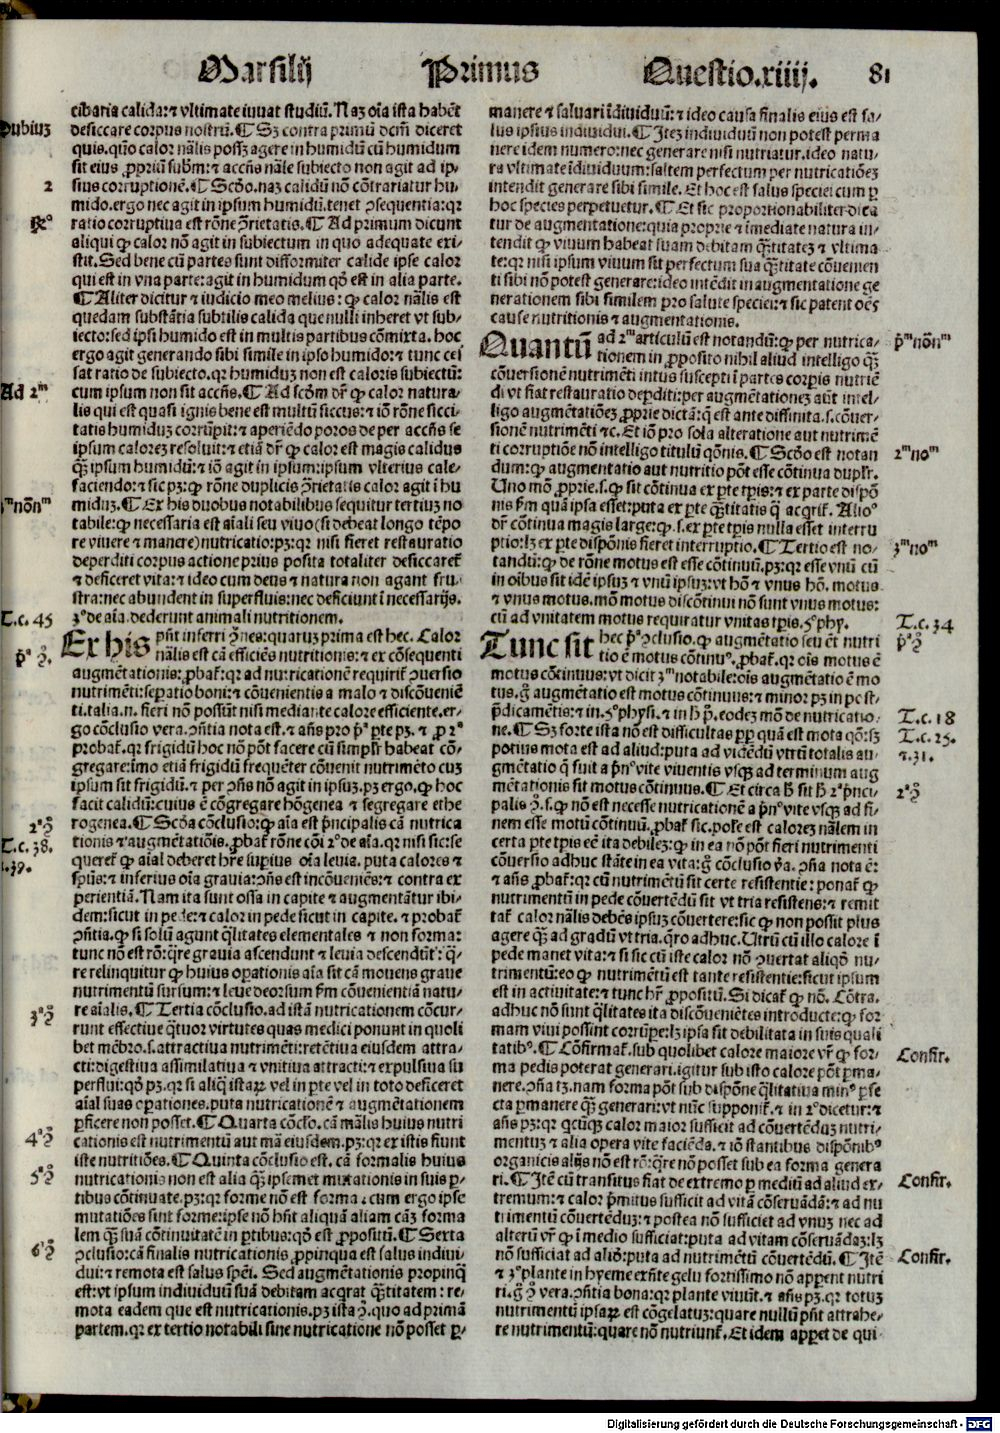 Marsilij Primus Questio.xiiij. 81
cibaria calida:⁊ vltimate iuuat studiū. Naȝ oīa ista habēt
desiccare corpus nostrū. ¶ Sȝ contra primū dcm̄ diceret
quis. quo calor nālis possȝ agere in humidū cū humidum
sit eius ꝓpriū subm̄:⁊ accn̄s nāle subiecto non agit ad ip/
sius corruptionē. ¶ Scd̄o. naȝ calidū nō cōtrariatur hu/
mido. ergo nec agit in ipsum humidū. tenet ꝯsequentia: qꝛ
ratio corruptiua est rōne ꝯrietatis. ¶ Ad primum dicunt
aliqui ꝙ calor nō agit in subiectum in quo adequate exi/
stit. Sed bene cū partes sunt difformiter calide ipse calor
qui est in vna parte: agit in humidum qd̄ est in alia parte.
¶ Aliter dicitur ⁊ iudicio meo melius: ꝙ calor nālis est
quedam substātia subtilis calida que nulli inheret vt sub/
iecto: sed ipsi humido est in multis partibus cōmixta. hoc
ergo agit generando sibi simile in ipso humido: ⁊ tunc ces
sat ratio de subiecto. qꝛ humiduȝ non est caloris subiectū:
cum ipsum non sit accn̄s. ¶ Ad scd̄m dr̄ ꝙ calor natura/
lis qui est quasi ignis bene est multū siccus: ⁊ iō rōne sicci
tatis humiduȝ corrūpit: ⁊ aperiēdo poros de per accn̄s se
ipsum calorez resoluit: ⁊ etiā dr̄ ꝙ calor est magis calidus
qȝ ipsum humidū: ⁊ iō agit in ipsum: ipsum vlterius cale/
faciendo: ⁊ sic pȝ: ꝙ rōne duplicis ꝯrietatis calor agit ī hu
miduȝ. ¶ Ex his duobus notabilibus sequitur tertiuȝ no
tabile: ꝙ necessaria est aīali seu viuo (si debeat longo tēpo
re viuere ⁊ manere) nutricatio: pȝ: qꝛ nisi fieret restauratio
deperditi corpus actione prius posita totaliter desiccaret̄
⁊ deficeret vita: ⁊ ideo cum deus ⁊ natura non agant fru/
stra: nec abundent in superfluis: nec deficiunt ī necessarijs.
3º de aīa. dederunt animali nutritionem.
Ex his pn̄t inferri ꝯnes: quaruȝ prima est hec. Calor
nālis est cā efficiēs nutritionis: ⁊ ex cōsequenti
augmētationis: ꝓbat̄. qꝛ ad nutricationē requirit̄ ꝯuersio
nutrimēti: sepatio boni: ⁊ cōuenientis a malo ⁊ discōueniē
ti. talia. n. fieri nō possūt nisi mediante calore efficiente. er/
go cōclusio vera. ꝯn̄tia nota est. ⁊ an̄s pro pª pte pȝ. ⁊ ꝓ 2ª
probat̄. qꝛ frigidū hoc nō pōt facere cū simplr̄ habeat cō/
gregare: īmo etiā frigidū frequēter cōuenit nutrimēto cuȝ
ipsum sit frigidū. ⁊ per ꝯn̄s nō agit in ipsuȝ. pȝ ergo. ꝙ hoc
facit calidū: cuius ē cōgregare hōgenea ⁊ segregare ethe
rogenea. ¶ Scd̄a cōclusio: ꝙ aīa est prīcipalis cā nutrica
tionis ⁊ augmētatiōis. ꝓbat̄ rōne cōi 2º de aīa. qꝛ nisi sic: se
queret̄ ꝙ aīal deberet hr̄e supius oīa leuia. puta calores ⁊
spūs: ⁊ inferius oīa grauia: ꝯn̄s est incōueniēs: ⁊ contra ex
perientiā. Nam ita sunt ossa in capite ⁊ augmentātur ibi/
dem: sicut in pede: ⁊ calor in pede sicut in capite. ⁊ probat̄
ꝯn̄tia. ꝙ si solū agunt qlitates elementales ⁊ non forma:
tunc nō est rō: qre grauia ascendunt ⁊ leuia descendūt: q̄/
re relinquitur ꝙ huius opationis aīa sit cā mouens graue
nutrimentū sursum: ⁊ leue deorsum fm̄ cōuenientiā natu/
re aīalis. ¶ Tertia cōclusio. ad istā nutricationem cōcur/
runt effectiue qtuor virtutes quas medici ponunt in quoli
bet mēbro. s. attractiua nutrimēti: retētiua eiusdem attra/
cti: digestiua assimilatiua ⁊ vnitiua attracti: ⁊ expulsiua su
perflui: qd̄ pȝ. qꝛ si aliq̄ istaꝝ vel in pte vel in toto deficeret
aīal suas opationes. puta nutricationē ⁊ augmētationem
pficere non posset. ¶ Quarta cōclo̅. cā mālis huius nutri
cationis est nutrimentū aut mā eiusdem. pȝ: qꝛ ex istis fiunt
iste nutritiōes. ¶ Quinta cōclusio est. cā formalis huius
nutricationis non est alia qȝ ipsemet mutationis in suis p/
tibus cōtinuate. pȝ: qꝛ forme nō est forma. cum ergo ipse
mutatiōes sint forme: ipse nō hn̄t aliquā aliam cāȝ forma
lem qȝ suā cōtinuitatē in ptibus: qd̄ est ꝓpositū. ¶ Sexta
ꝯclusio: cā finalis nutricationis ꝓpinqua est salus indiui/
dui: ⁊ remota est salus spēi. Sed augmētationis propinq̄
est: vt ipsum indiuiduū suā debitam acqrat qtitatem: re/
mota eadem que est nutricationis. pȝ ista ꝯ. quo ad primā
partem. qꝛ ex tertio notabili sine nutricatione nō posset p/
Dubiuȝ
2
Rº
Ad 2ᵐ
ᵐnōnᵐ
T.c. 45
pª ꝯ.
2ª ꝯ
T.c. 38.
39.
3ª ꝯ
4ª ꝯ
5ª ꝯ
6ª ꝯ
manere ⁊ saluari īdiuiduū: ⁊ ideo causa finalis eius est sa/
lus ipsius indiuidui. ¶ Iteȝ indiuiduū non potest perma
nere idem numero: nec generare nisi nutriatur. ideo natu/
ra vltimate īdiuiduum: saltem perfectum per nutricatiōeȝ
intendit generare sibi simile. Et hoc est salus speciei cum p
hoc species perpetuetur. ¶ Et sic proportionabiliter dica
tur de augmentatione: quia proprie ⁊ īmediate natura in/
tendit ꝙ viuum habeat suam debitam qtitateȝ ⁊ vltima
te: qꝛ nisi ipsum viuum sit perfectum sua qtitate cōuenien
ti sibi nō potest generare: ideo intēdit in augmentatione ge
nerationem sibi similem pro salute speciei: ⁊ sic patent oēs
cause nutritionis ⁊ augmentationis.
Quantū ad 2ᵐ articulū est notandū: ꝙ per nutrica/
tionem in ꝓposito nihil aliud intelligo qȝ
cōuersionē nutrimēti intus suscepti ī partes corpis nutriē
di vt fiat restauratio depditi: per augmentationeȝ aūt intel/
ligo augmētatiōeȝ ꝓprie dictā: q̄ est ante diffinita. s. cōuer/
sionē nutrimēti ⁊c. Et iō pro sola alteratione aut nutrimē
ti corruptiōe nō intelligo titulū qōnis. ¶ Scd̄o est notan
dum: ꝙ augmentatio aut nutritio pōt esse cōtinua duplr̄.
Uno mō ꝓprie. s. ꝙ sit cōtinua ex pte tpis: ⁊ ex parte dispō
nis fm̄ quā ipsa esset: puta ex pte qtitatis q̄ acqrit̄. Alioº
dr̄ cōtinua magis large: ꝙ. s. ex pte tpis nulla esset interru
ptio: lȝ ex pte dispōnis fieret interruptio. ¶ Tertio est no/
tandū: ꝙ de rōne motus est esse cōtinuū. pȝ: qꝛ esse vnū cū
in oībus sit idē ipsuȝ ⁊ vnū ipsuȝ: vt hō ⁊ vnus hō. motus
⁊ vnus motus. mō motus discōtinui nō sunt vnus motus:
cū ad vnitatem motus requiratur vnitas tpis. 5º phy.
Tunc sit hec pª ꝯclusio. ꝙ augmētatio seu ēt nutri
tio ē motus cōtinuº. ꝓbat̄. qꝛ oīs motus ē
motus cōtinuus: vt dicit 3ᵐ notabile: oīs augmētatio ē mo
tus. g̊ augmētatio est motus continuus: ⁊ minor pȝ in post
p̄dicamētis: ⁊ in. 5º physi. ⁊ in h̄ p̄. eodeȝ mō de nutricatio/
ne. ¶ Sȝ forte ista nō est difficultas ppꝛ quā est mota qō: sȝ
potius mota est ad aliud: puta ad vidēdū vtrū totalis au/
gmētatio q̄ fuit a pn̄º vite viuentis vsqȝ ad terminum aug
mētationis sit motus cōtinuus. ¶ Et circa h̄ sit h̄ 2ª pͥnci/
palis ꝯ. s. ꝙ nō est necesse nutricationē a pn̄º vite vsqȝ ad fi/
nem esse motū cōtinuū. ꝓbat̄ sic. pose est caloreȝ nālem in
certa pte tpis eē ita debileȝ: ꝙ in ea nō pōt fieri nutrimenti
cōuersio adhuc stāte in ea vita: g̊ cōclusio va. ꝯn̄a nota ē:
⁊ an̄s ꝓbat̄: qꝛ cū nutrimētū sit certe resistentie: ponat̄ ꝙ
nutrimentū in pede cōuertēdū sit vt tria resistens: ⁊ remit
tat̄ calor nālis debēs ipsuȝ cōuertere: sic ꝙ non possit plus
agere qȝ ad gradū vt tria. qro adhuc. Utrū cū illo calore ī
pede manet vita: ⁊ si sic cū iste calor nō ꝯuertat aliqō nu/
trimentū: eo ꝙ nutrimētū est tante resistentie: sicut ipsum
est in actiuitate: ⁊ tunc hr̄ ꝓpositū. Si dicat̄ ꝙ nō. Cōtra.
adhuc nō sunt qlitates ita discōueniētes introducte: ꝙ for/
mam viui possint corrūpe: lȝ ipsa sit debilitata in suis quali
tatibº. ¶ Cōfirmat̄. sub quolibet calore maiore vr̄ ꝙ for/
ma pedis poterat generari. igitur sub isto calore pōt pma/
nere. ꝯn̄a tȝ. nam forma pōt sub dispōne qlitatiua minº pfe
cta pmanere qȝ generari: vt nūc supponit̄. ⁊ in 2º dicetur: ⁊
an̄s pȝ: qꝛ qcūqȝ calor maior sufficit ad cōuertēduȝ nutri/
mentuȝ ⁊ alia opera vite faciēda. ⁊ iō stantibus dispōnibº
organicis alijs nō est rō: qre nō posset sub ea forma genera
ri. ¶ Itē cū transitus fiat de extremo p mediū ad aliud ex/
tremum: ⁊ calor pͥmitus sufficit ad vitā cōseruādā: ⁊ ad nu
trimentū cōuertēduȝ: ⁊ postea nō sufficiet ad vnuȝ nec ad
alterū vr̄ ꝙ ī medio sufficiat: puta ad vitam cōseruādaȝ: lȝ
nō sufficiat ad aliō: puta ad nutrimētū cōuertēdū. ¶ Itē
⁊ 3º plante in hyeme exn̄te gelu fortissimo nō apparent nutri
ri. g̊ ꝯ vera. ꝯn̄tia bona: qꝛ plante viuūt. ⁊ an̄s pȝ. qꝛ totuȝ
nutrimentū ipsaꝝ est cōgelatuȝ: quare nullū pn̄t attrahe/
re nutrimentū: quare nō nutriunt̄. Et idem apparet de qui
pͥmnōnᵐ
2ᵐnoᵐ
3ᵐnoᵐ
T.c. 34
pª ꝯ
T.c. 18
T.c. 25.
⁊. 31.
2ª ꝯ
Confir.
Confir.
Confir.
Digitalisierung gefördert durch die Deutsche Forschungsgemeinschaft - DFG